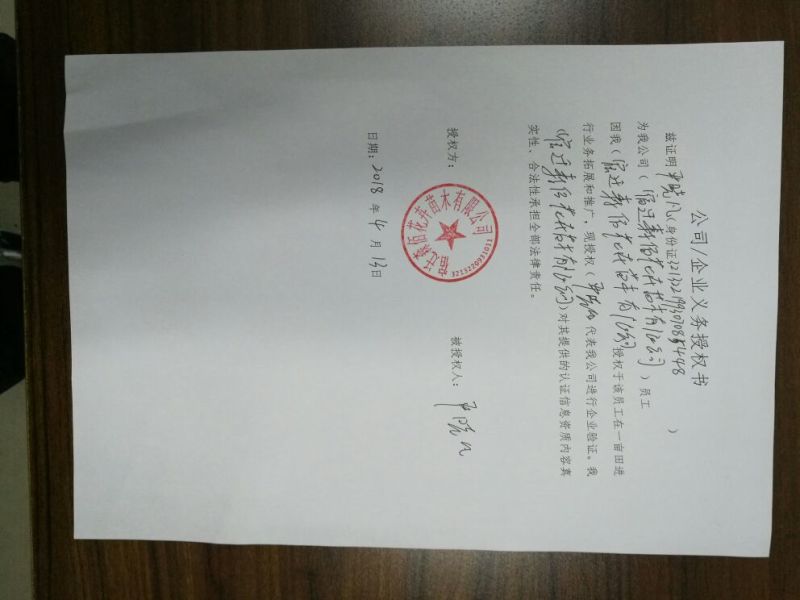 公司/企业义务授权书
兹证明 尹晓凡（身份证321322199307085448）
为我公司（宿迁新佰花卉苗木有限公司）员工
因我（宿迁新佰花卉苗木有限公司授权于该员工在一亩田进
行业务拓展和推广，现授权（尹晓凡 代表我公司进行企业验证。我
（宿迁新佰花卉苗木有限公司）对其提供的认证信息资质内容真
实性、合法性承担全部法律责任。
授权方：
被授权人：尹晓凡
花卉苗木有限公司
3213220931011
日期：2018 年 4 月 13日